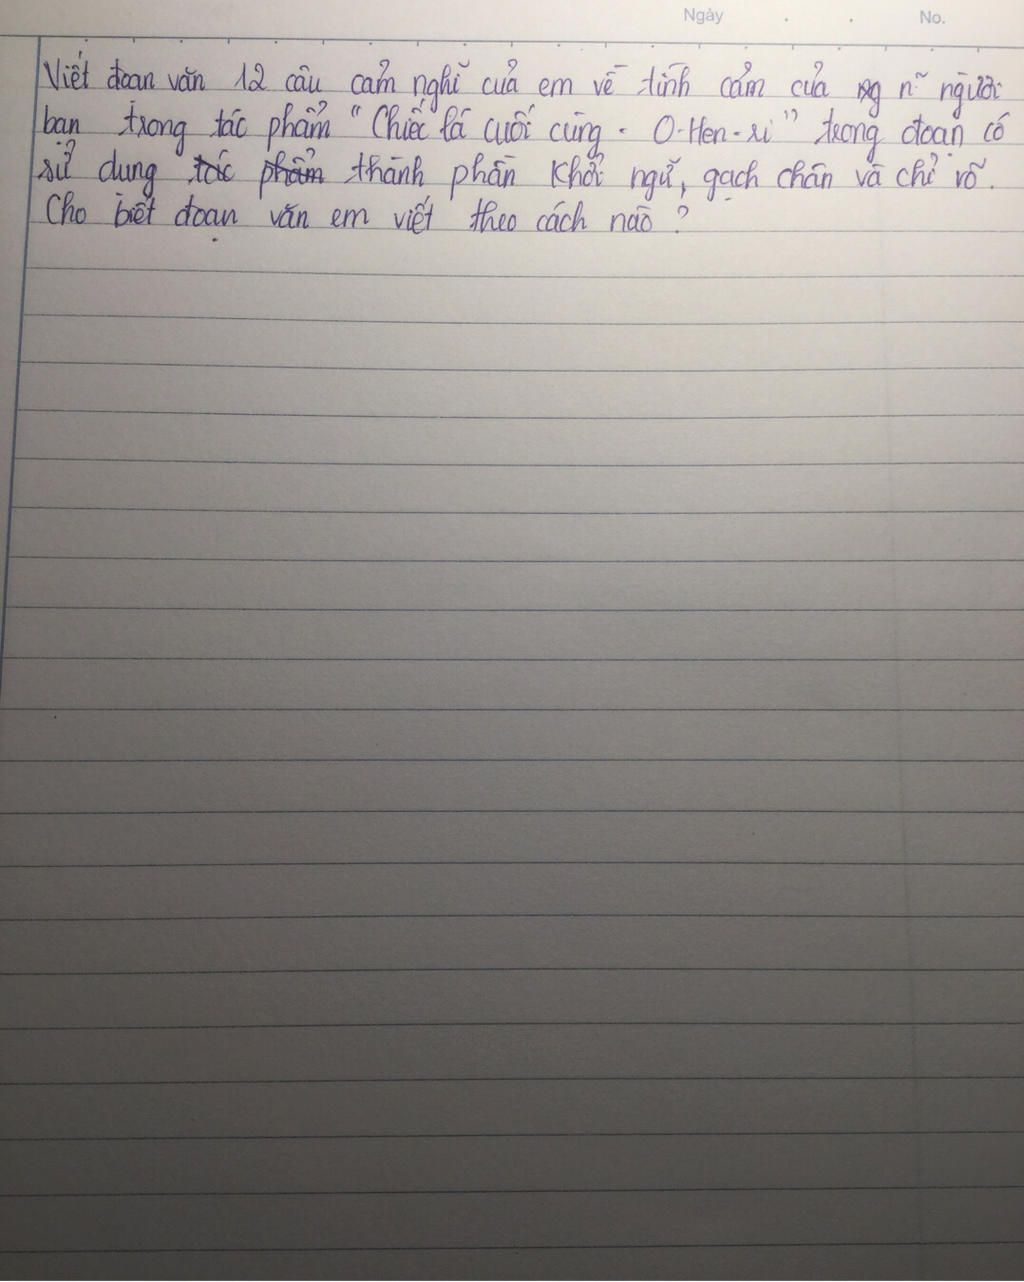 Ngày . . No.
Viết đoạn văn 12 câu cảm nghĩ của em về tình cảm của ng n~ người
bạn trong tác phẩm "Chiếc lá cuối cùng - O-Hen-ri" trong đoạn có
sử dụng tác phẩm thành phần khởi ngữ, gạch chân và chỉ rõ.
Cho biết đoạn văn em viết theo cách nào?